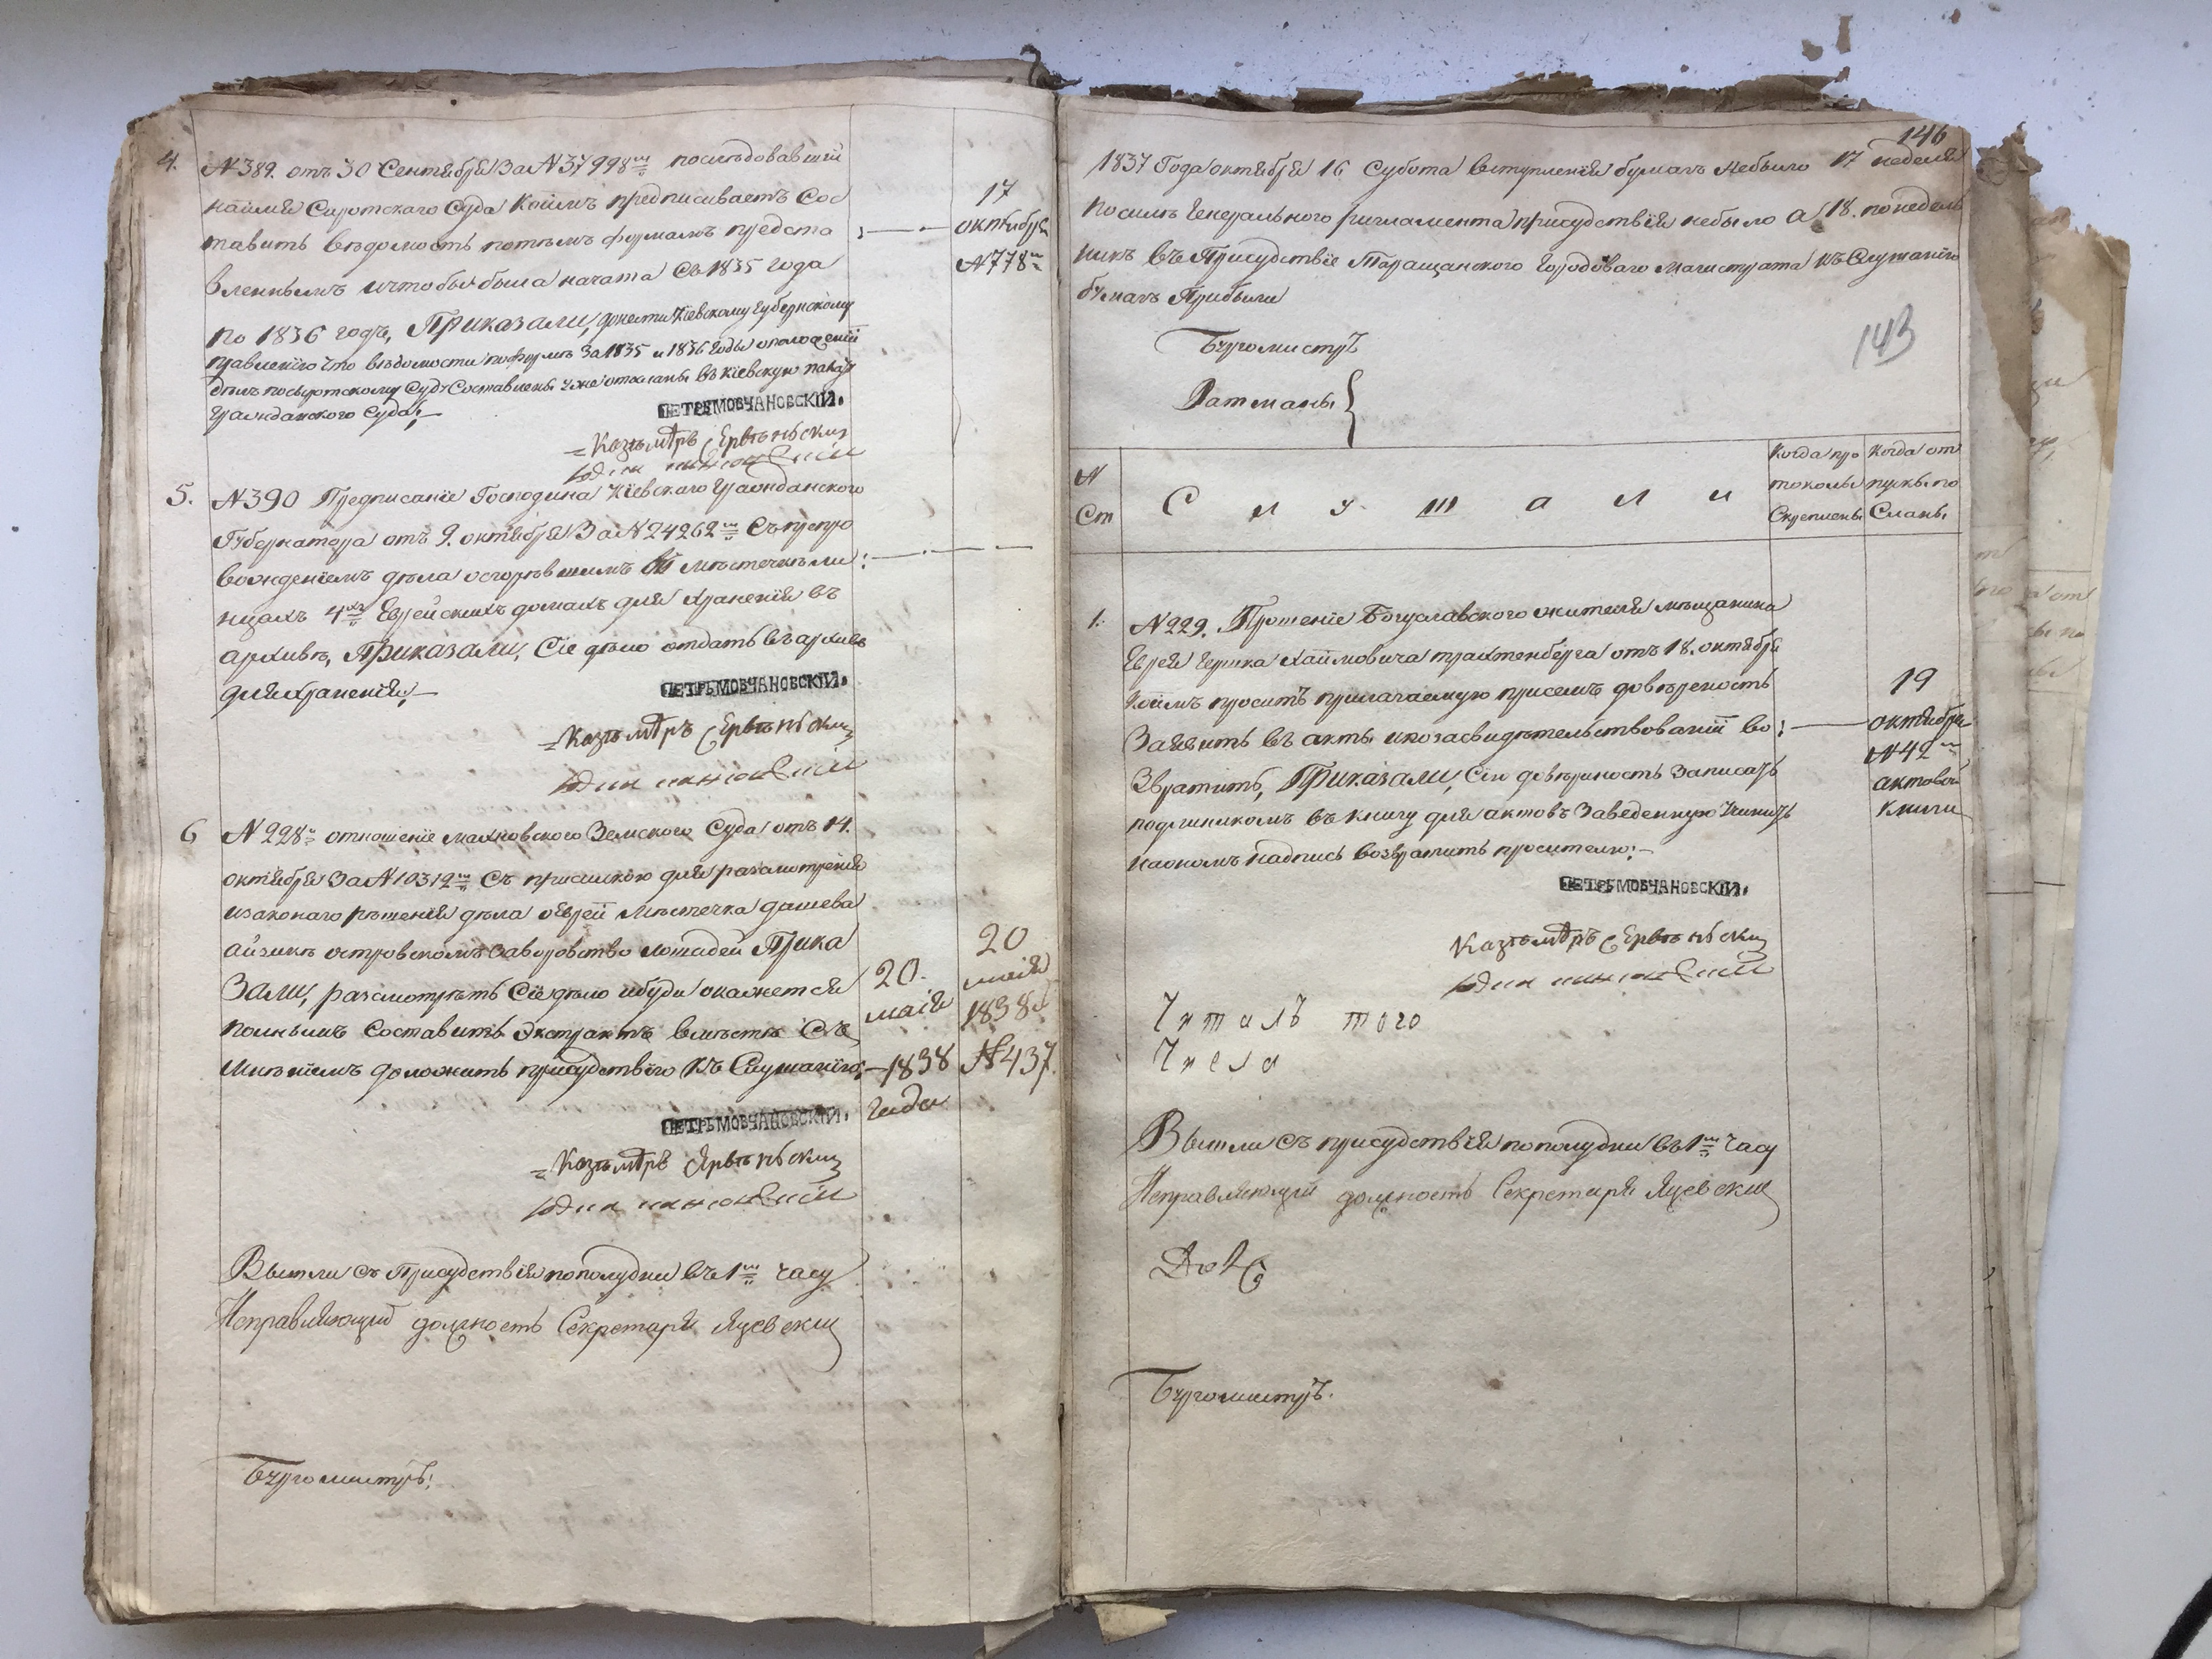 4. №389. отъ 30 Сентября За №37998мъ последовавшій
на имя Сиротскаго Суда коимъ предписываетъ Сос
тавить ведомость потемъ формамъ предста
вленнымъ и чтобы была начата Съ 1835 года
по 1836 годъ, Приказали, донести Кіевскому Губернскому
правленію что ведомости по форме За 1835 и 1836 годы о положеніи
делъ по сыротскому Суду Составлены уже отосланы въ Кіевскую палату
Гражданского Суда;—
17
октября
№778мъ
ПЕТРЪ МОВЧАНОВСКІЙ.
5. №390 Предписаніе Господина Кіевскаго Гражданского
Губернатора отъ 9. октября За №24262мъ Съ препро
вожденіемъ дела осгоревшимъ въ местечке ли
нцахъ 4хъ Еврейскихъ домахъ для храненія въ
архиве, Приказали, Сіе дело отдать въ архивъ
для храненія;—
ПЕТРЪ МОВЧАНОВСКІЙ.
6 №228й отношеніе махновского Земского Суда отъ 14.
октября За №10312мъ Съ присылкою для разсмотренія
изаконаго решенія дела о Еврей местечка дашева
айзике островскомъ заворовство лошадей Прика
Зали, разсмотреть Сіе дело ибуди окажется
полнымъ Составить Экстрактъ вместе Съ
мненіемъ доложить присудствію къ Слушанію;—
20.
маія
1838
года
20
маія
1838
№437.
ПЕТРЪ МОВЧАНОВСКІЙ.
Вышли съ Присудствія пополудни въ 1мъ часу
Исправляющій должность Секретаря Яцевскій
Бургомистръ:
146
1837 Года октября 16 Субота вступленія бумагъ Небыло 17 неделя
посиле Генерального регламента присудствія небыло а 18. понедель
никъ въ Присудствіе Таращанского Городоваго Магистрата къ Слушанію
бумагъ Прибыли
143
Бургомистръ
Ратманы
№
Ст
С л у ш а л и
Когда про
токолы
Скреплены
Когда от
пуски по
Сланы
1. №229. Прошеніе Богуславского жителя мещанина
Еврея Гершка Хаймовича трахтенберга отъ 18. октября
коимъ проситъ прилагаемую присемъ доверенность
Заявить въ акты ипозасвидетельствованіи во;—
Звратить, Приказали, Сію доверность Записать
подлинникомъ въ книгу для актовъ Заведенную Учинить
наономъ надпись возвратить просителю;—
19
октября
№42мъ
актовой
книги
ПЕТРЪ МОВЧАНОВСКІЙ.
Читалъ того
Числа
Вышли съ присудствія пополудни въ 1мъ часу
Исправляющій должность Секретаря Яцевскій
Бургомистръ.